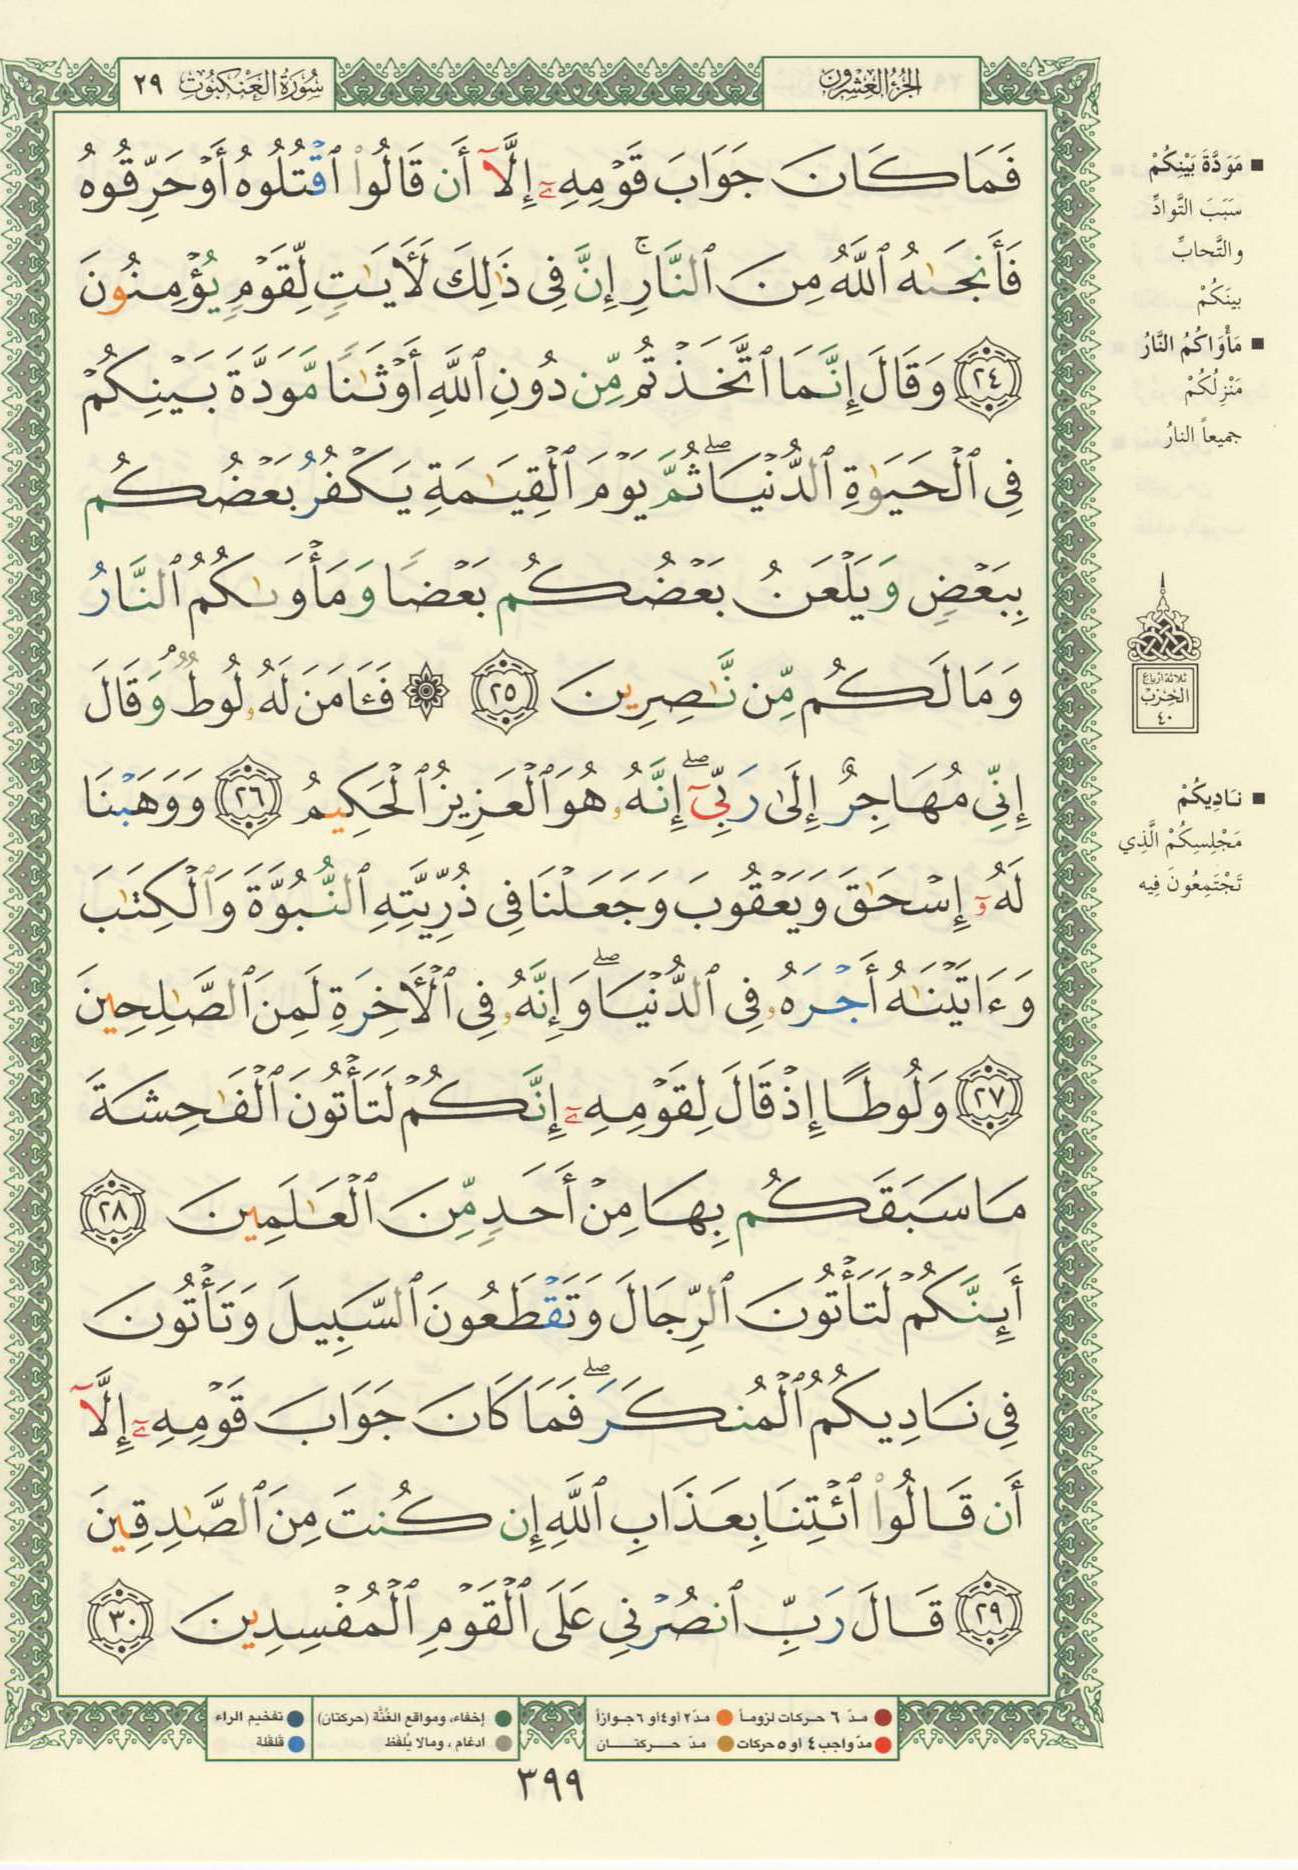 سُورَةُ العَنْكَبُوتِ ٢٩
الجُزْءُ العِشْرُونَ
فَمَا كَانَ جَوَابَ قَوْمِهِۦٓ إِلَّآ أَن قَالُوا۟ ٱقْتُلُوهُ أَوْ حَرِّقُوهُ
فَأَنجَىٰهُ ٱللَّهُ مِنَ ٱلنَّارِ ۚ إِنَّ فِى ذَٰلِكَ لَـَٔايَـٰتٍ لِّقَوْمٍ يُؤْمِنُونَ
٢٤ وَقَالَ إِنَّمَا ٱتَّخَذْتُم مِّن دُونِ ٱللَّهِ أَوْثَـٰنًا مَّوَدَّةَ بَيْنِكُمْ
فِى ٱلْحَيَوٰةِ ٱلدُّنْيَا ۖ ثُمَّ يَوْمَ ٱلْقِيَـٰمَةِ يَكْفُرُ بَعْضُكُم
بِبَعْضٍ وَيَلْعَنُ بَعْضُكُم بَعْضًا وَمَأْوَىٰكُمُ ٱلنَّارُ
وَمَا لَكُم مِّن نَّـٰصِرِينَ ٢٥ ۞ فَـَٔامَنَ لَهُۥ لُوطٌ ۘ وَقَالَ
إِنِّى مُهَاجِرٌ إِلَىٰ رَبِّىٓ ۖ إِنَّهُۥ هُوَ ٱلْعَزِيزُ ٱلْحَكِيمُ ٢٦ وَوَهَبْنَا
لَهُۥٓ إِسْحَـٰقَ وَيَعْقُوبَ وَجَعَلْنَا فِى ذُرِّيَّتِهِ ٱلنُّبُوَّةَ وَٱلْكِتَـٰبَ
وَءَاتَيْنَـٰهُ أَجْرَهُۥ فِى ٱلدُّنْيَا ۖ وَإِنَّهُۥ فِى ٱلْـَٔاخِرَةِ لَمِنَ ٱلصَّـٰلِحِينَ
٢٧ وَلُوطًا إِذْ قَالَ لِقَوْمِهِۦٓ إِنَّكُمْ لَتَأْتُونَ ٱلْفَـٰحِشَةَ
مَا سَبَقَكُم بِهَا مِنْ أَحَدٍ مِّنَ ٱلْعَـٰلَمِينَ ٢٨
أَئِنَّكُمْ لَتَأْتُونَ ٱلرِّجَالَ وَتَقْطَعُونَ ٱلسَّبِيلَ وَتَأْتُونَ
فِى نَادِيكُمُ ٱلْمُنكَرَ ۖ فَمَا كَانَ جَوَابَ قَوْمِهِۦٓ إِلَّآ
أَن قَالُوا۟ ٱئْتِنَا بِعَذَابِ ٱللَّهِ إِن كُنتَ مِنَ ٱلصَّـٰدِقِينَ
٢٩ قَالَ رَبِّ ٱنصُرْنِى عَلَى ٱلْقَوْمِ ٱلْمُفْسِدِينَ ٣٠
■ مَوَدَّةَ بَيْنِكُمْ
سَبَبَ التَّوادِّ
والتَّحابِّ
بينَكُمْ
■ مَأْوَاكُمُ النَّارُ
مَنْزِلُكُمْ
جميعاً النارُ
ثلاثة أرباع
الحِزْبِ
٤٠
■ نَادِيكُمْ
مَجْلِسِكُمْ الَّذِي
تَجْتَمِعُونَ فِيه
مدّ ٦ حركات لزوماً مدّ٢ أو٤ أو ٦ جوازاً إخفاء، ومواقع الغُنَّة (حركتان) تفخيم الراء
مدّ واجب ٤ أو ٥ حركات مدّ حركتان ادغام ، ومالا يُلفَظ قلقلة
٣٩٩